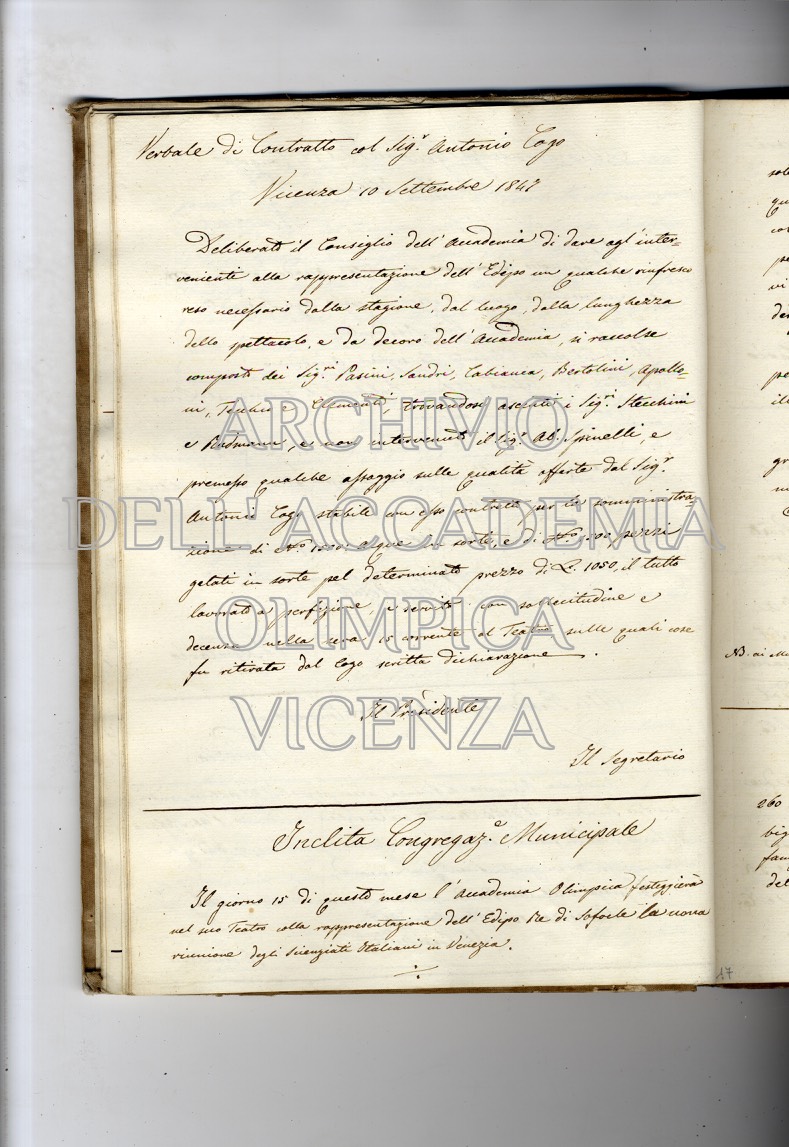 Verbale di Contratto col Sig.r Antonio Cogo
Vicenza 10 Settembre 1847
Deliberato il Consiglio dell'Accademia di dare agl'inter=
venienti alla rappresentazione dell'Edipo un qualche rinfresco
reso necessario dalla stagione, dal luogo, dalla lunghezza
dello spettacolo, e da decoro dell'Accademia, si raccolse
composto dei Sig.ri Pasini, Sandri, Cabianca, Bertolini, Apollo=
ni, Tecchio e Clementi, trovandosi assenti i Sig.ri Stecchini
e e non intervenuto il Sig.r Ab. Spinelli, e
premesso qualche assaggio sulle qualità offerte dal Sig.r
Antonio Cogo stabile con esso contratto per la somministra=
zione di N.o 1500 acque in sorte, e di N.o 500 pezzi
gelati in sorte pel determinato prezzo di L. 1050, il tutto
lavorato a perfezione, e servito con sollecitudine e
decenza nella sera 15 corrente al Teatro sulle quali cose
fu ritirata dal Cogo scritta dichiarazione.
Il Presidente
Il Segretario
Inclita Congregaz.e Municipale
Il giorno 15 di questo mese l'Accademia Olimpica festeggierà
nel suo Teatro colla rappresentazione dell'Edipo Re di Sofocle la nona
riunione degli Scienziati Italiani in Venezia.
ARCHIVIO
DELL'ACCADEMIA
OLIMPICA
VICENZA
260
17